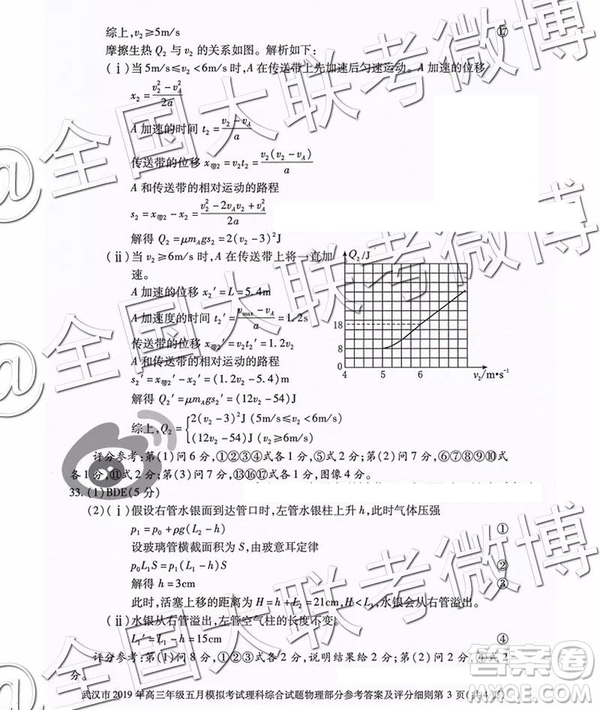 综上,v₂≥5m/s ⑰
摩擦生热 Q₂ 与 v₂ 的关系如图。解析如下:
(ⅰ)当 5m/s≤v₂<6m/s 时,A 在传送带上先加速后匀速运动。A 加速的位移
x₂=(v₂²-v_A²)/2a
A 加速的时间 t₂=(v₂-v_A)/a
传送带的位移 x带₂=v₂t₂=v₂(v₂-v_A)/a
A 和传送带的相对运动的路程
s₂=x带₂-x₂=(v₂²-2v_Av₂+v_A²)/2a
解得 Q₂=μm_Ags₂=2(v₂-3)²J
(ⅱ)当 v₂≥6m/s 时,A 在传送带上将一直加
速。
A 加速的位移 x₂′=L=5.4m
A 加速度的时间 t₂′=(v_max-v_A)/a=1.2s
传送带的位移 x带₂′=v₂t₂′=1.2v₂
A 和传送带的相对运动的路程
s₂′=x带₂′-x₂′=(1.2v₂-5.4)m
解得 Q₂′=μm_Ags₂′=(12v₂-54)J
综上,Q₂={2(v₂-3)²J (5m/s≤v₂<6m/s)
(12v₂-54)J (v₂≥6m/s)
Q₂/J
18
8
0
4 5 6 v₂/m·s⁻¹
评分参考:第(1)问 6 分,①②③④式各 1 分,⑤式 2 分;第(2)问 7 分,⑥⑦⑧⑨⑩⑪⑫式
各 1 分,第(3)问 7 分,⑬⑯⑰式各 1 分,图像 4 分。
33. (1)BDE(5 分)
(2)(ⅰ)假设右管水银面到达管口时,左管水银柱上升 h,此时气体压强
p₁=p₀+ρg(L₂-h) ①
设玻璃管横截面积为 S,由玻意耳定律
p₀L₁S=p₁(L₁-h+L₂-h)S ②
解得 h=3cm
此时,活塞上移的距离为 H=h+L₂=21cm,H<L₃,水银会从右管溢出。 ③
(ⅱ)水银从右管溢出,左管空气柱的长度不变。
L₁′=L₁-h=15cm ④
评分参考:第(1)问 5 分。第(2)问 10 分,
武汉市 2019 年高三年级五月模拟考试理科综合试题物理部分参考答案及评分细则第 3 页(共 4 页)
@全国大联考微博
@全国大联考微博
@全国大联考微博
答案圈